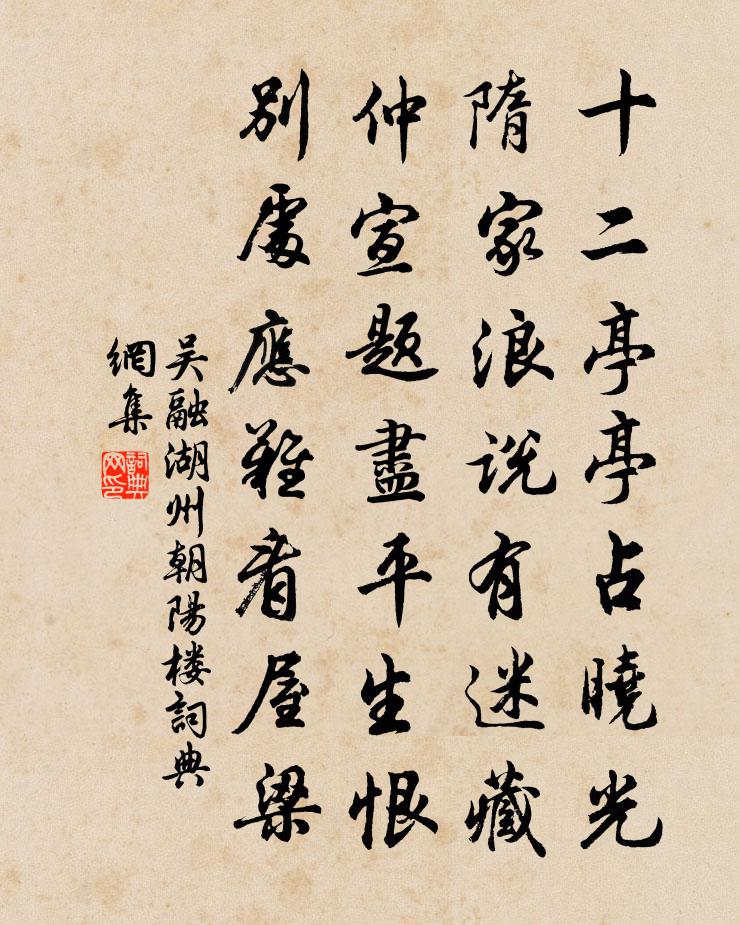 十二亭亭占曉光
隋家浪說有迷藏
仲宣題盡平生恨
別處應難看屋梁
吴融湖州朝陽楼詞典
網集
詞典
网印